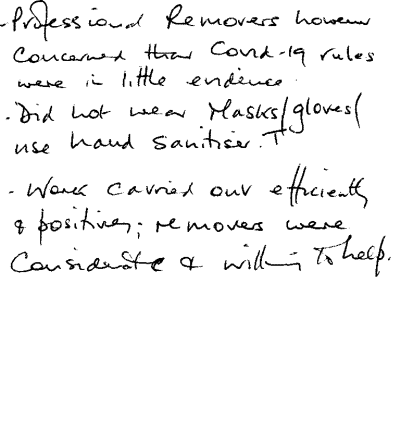 - Professional Removers however
concerned that Covid-19 rules
were in little evidence.
. Did not wear Masks/gloves/
use hand sanitiser. T
- Work carried out efficiently
& positively; removers were
considerate & willing to help.